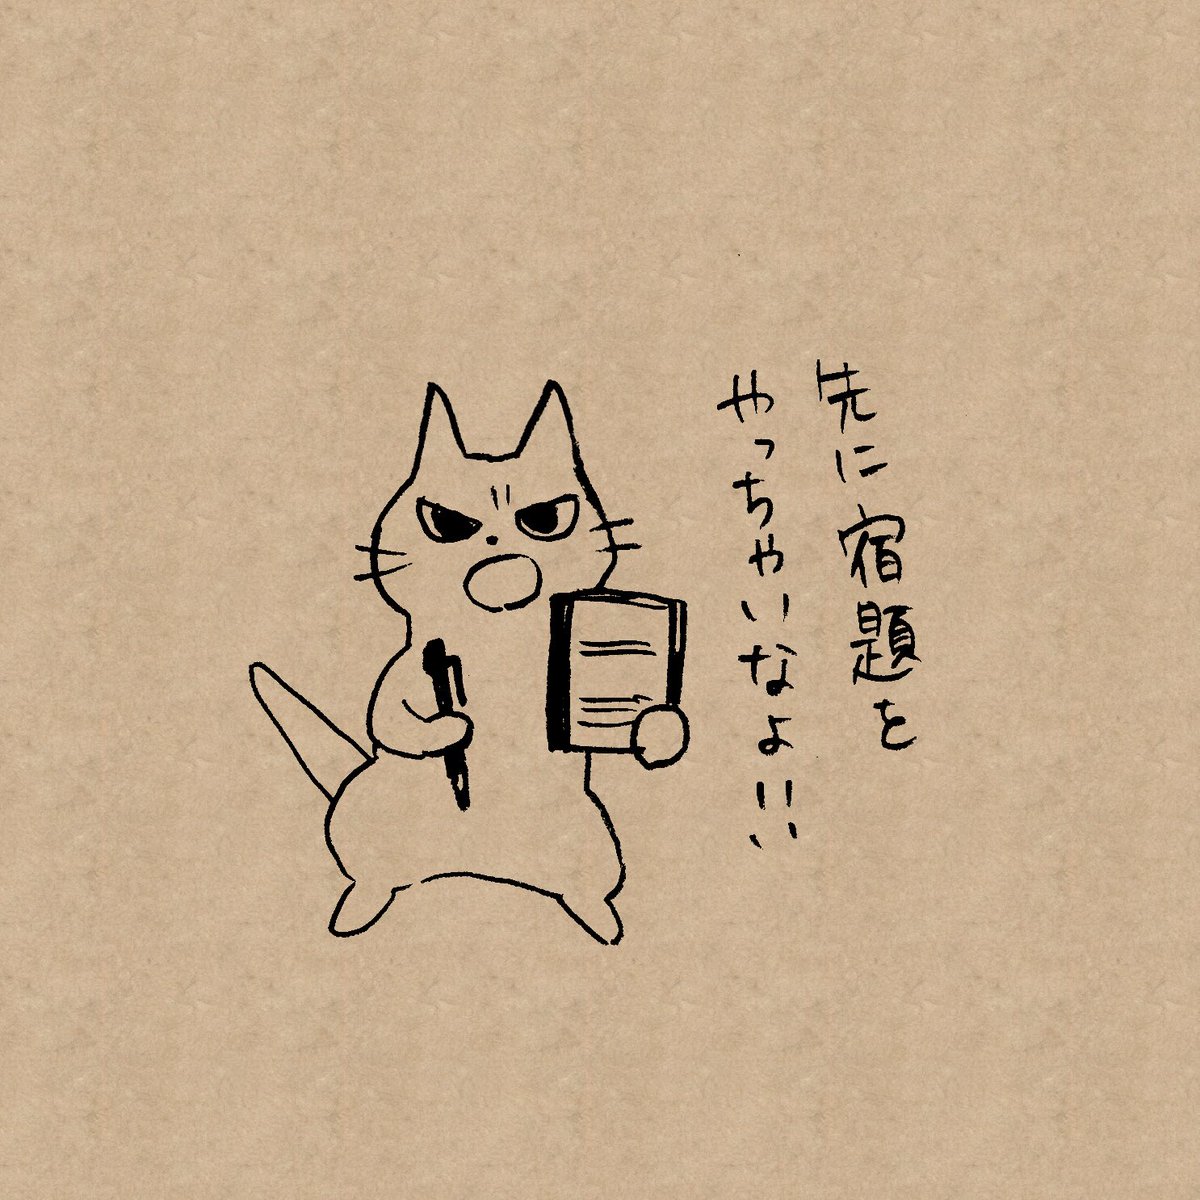 先に宿題を
やっちゃいなよ!!